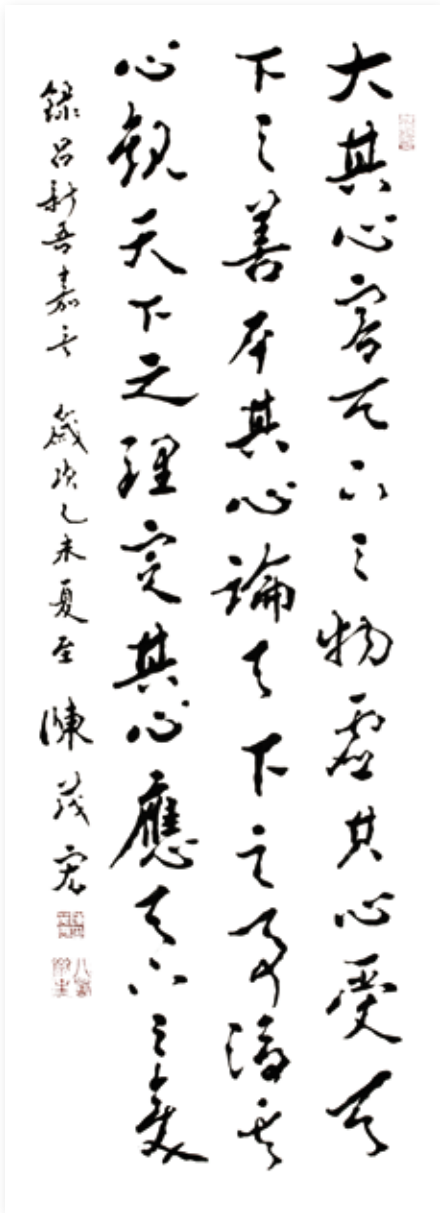 大其心容天下之物虛其心受天
下之善平其心論天下之事潛其
心觀天下之理定其心應天下之變
錄呂新吾嘉言 歲次乙未夏至 陳茂宏